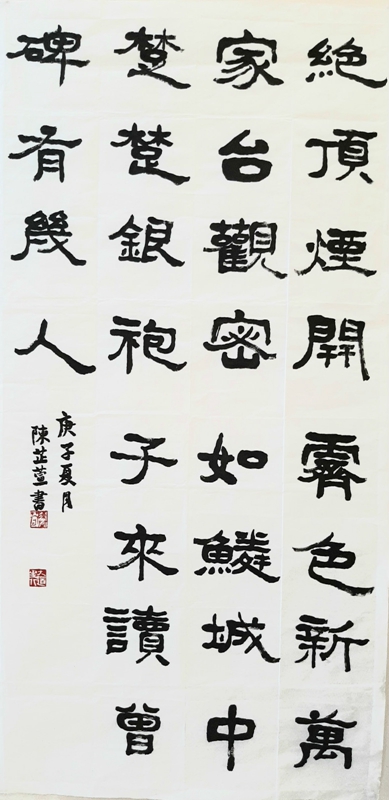 絶頂煙開霽色新萬
家台觀密如鱗城中
楚楚銀袍子來讀曾
碑有幾人
庚子夏月
陳芷萱書